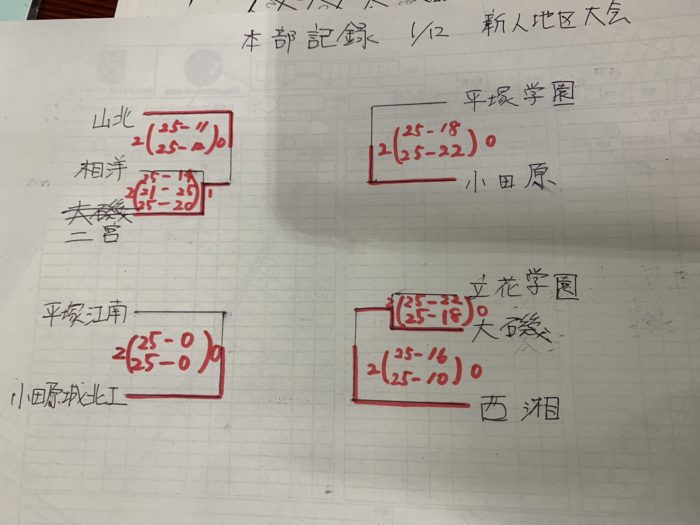 本部記録 1/12 新人地区大会
山北
2(25-11
25-12)0
相洋
2(25-19
21-25
25-20)1
大磯
二宮
平塚学園
2(25-18
25-22)0
小田原
平塚江南
2(25-0
25-0)0
小田原城北工
立花学園
2(25-22
25-18)0
大磯
2(25-16
25-10)0
西湘